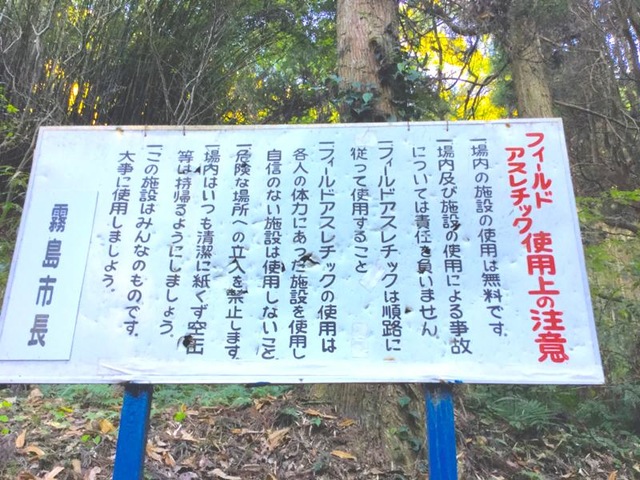 フィールド
アスレチック使用上の注意
一場内の施設の使用は無料です。
一場内及び施設の使用による事故
については責任を負いません。
一フィールドアスレチックは順路に
従って使用すること
一フィールドアスレチックの使用は
各人の体力にあった施設を使用し
自信のない施設は使用しないこと
一危険な場所への立入を禁止します
一場内はいつも清潔に紙くず空缶
等は持帰るようにしましょう。
一この施設はみんなのものです。
大事に使用しましょう。
霧島市長